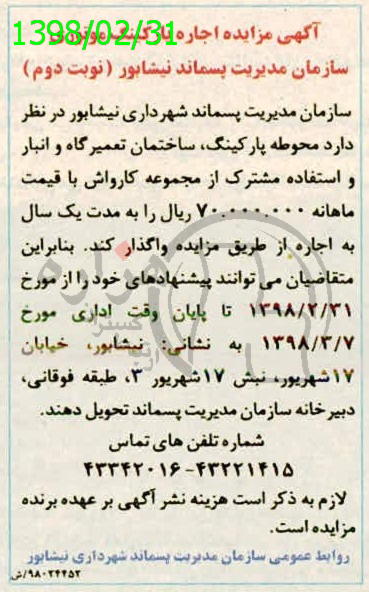 1398/02/31
آگهی مزایده اجاره پارکینگ موتوری
سازمان مدیریت پسماند نیشابور (نوبت دوم)
سازمان مدیریت پسماند شهرداری نیشابور در نظر
دارد محوطه پارکینگ، ساختمان تعمیرگاه و انبار
و استفاده مشترک از مجموعه کارواش با قیمت
ماهانه ۷۰.۰۰۰.۰۰۰ ریال را به مدت یک سال
به اجاره از طریق مزایده واگذار کند. بنابراین
متقاضیان می توانند پیشنهادهای خود را از مورخ
۱۳۹۸/۲/۳۱ تا پایان وقت اداری مورخ
۱۳۹۸/۳/۷ به نشانی: نیشابور، خیابان
۱۷شهریور، نبش ۱۷شهریور ۳، طبقه فوقانی،
دبیرخانه سازمان مدیریت پسماند تحویل دهند.
شماره تلفن های تماس
۴۳۳۴۲۰۱۶-۴۳۲۲۱۴۱۵
لازم به ذکر است هزینه نشر آگهی بر عهده برنده
مزایده است.
روابط عمومی سازمان مدیریت پسماند شهرداری نیشابور
۹۸۰۲۴۴۵۲/ش